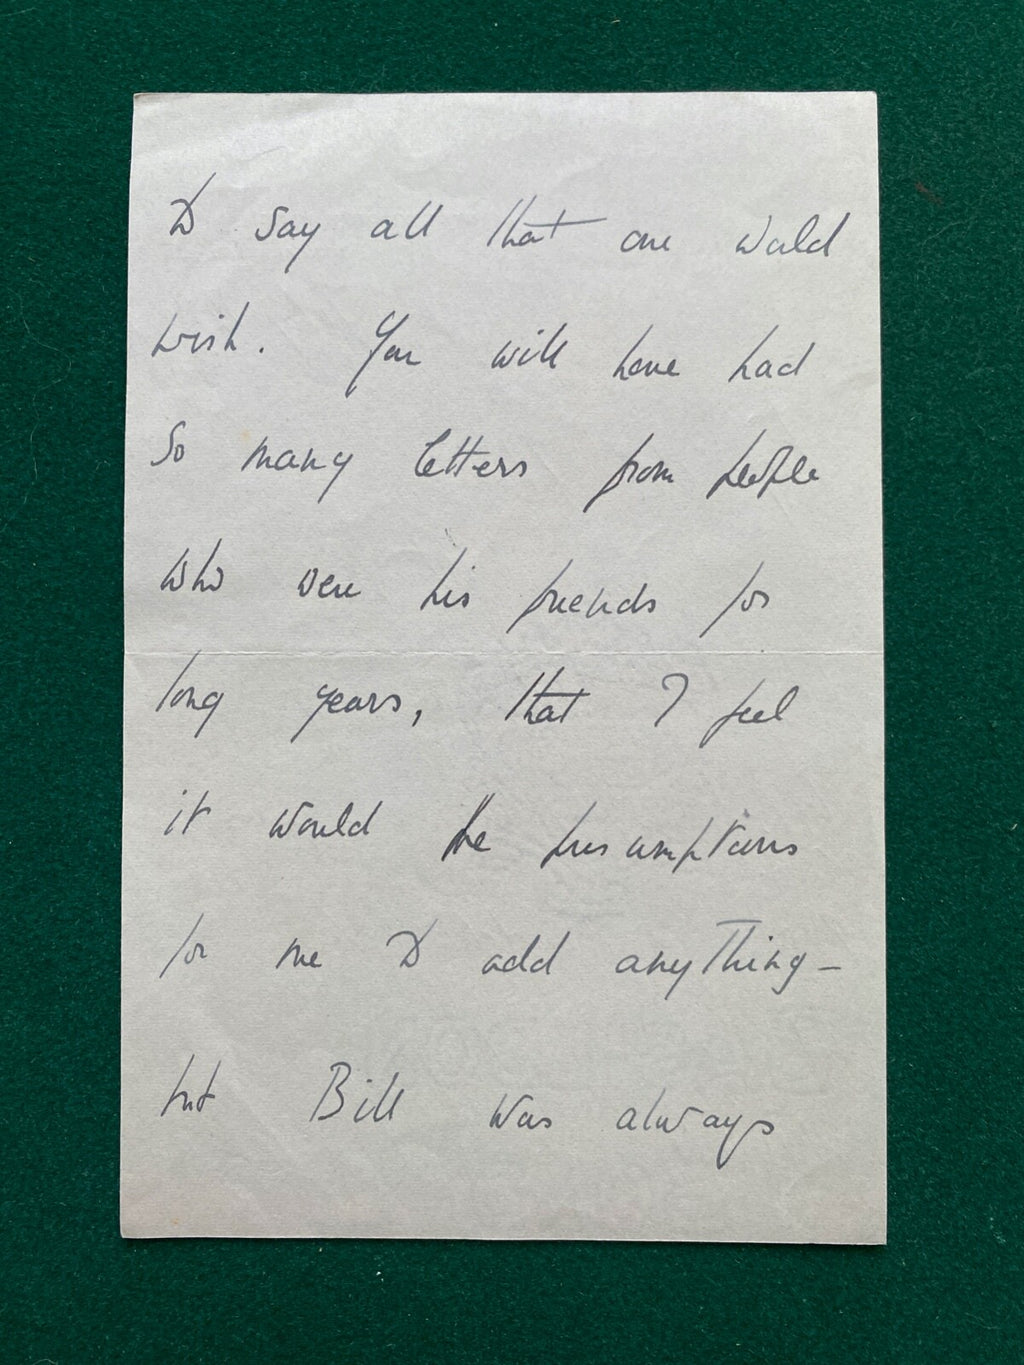 to say all that one would
wish. You will have had
so many letters from people
who were his friends for
long years, that I feel
it would be presumptious
for me to add anything -
but Bill was always